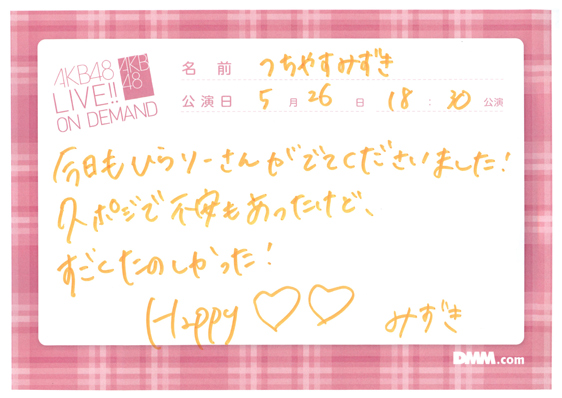 AKB48
LIVE!!
ON DEMAND
AKB
48
名 前 つちやすみずき
公演日 5 月 26 日 18 : 30 公演
今日もひらりーさんがでてくださいました!
久ポジで不安もあったけど、
すごくたのしかった!
Happy ♡♡ みずき
DMM.com